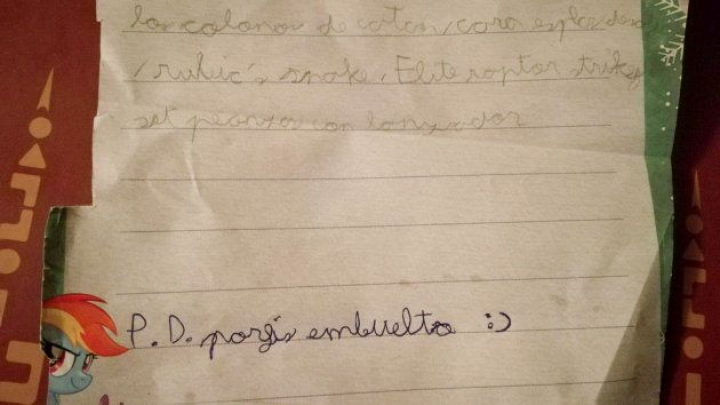 los colonos de catan, cara
/ rubic's snake, Elite raptor strike
set peonza con lanzador
P.D. porfis embuelto :)